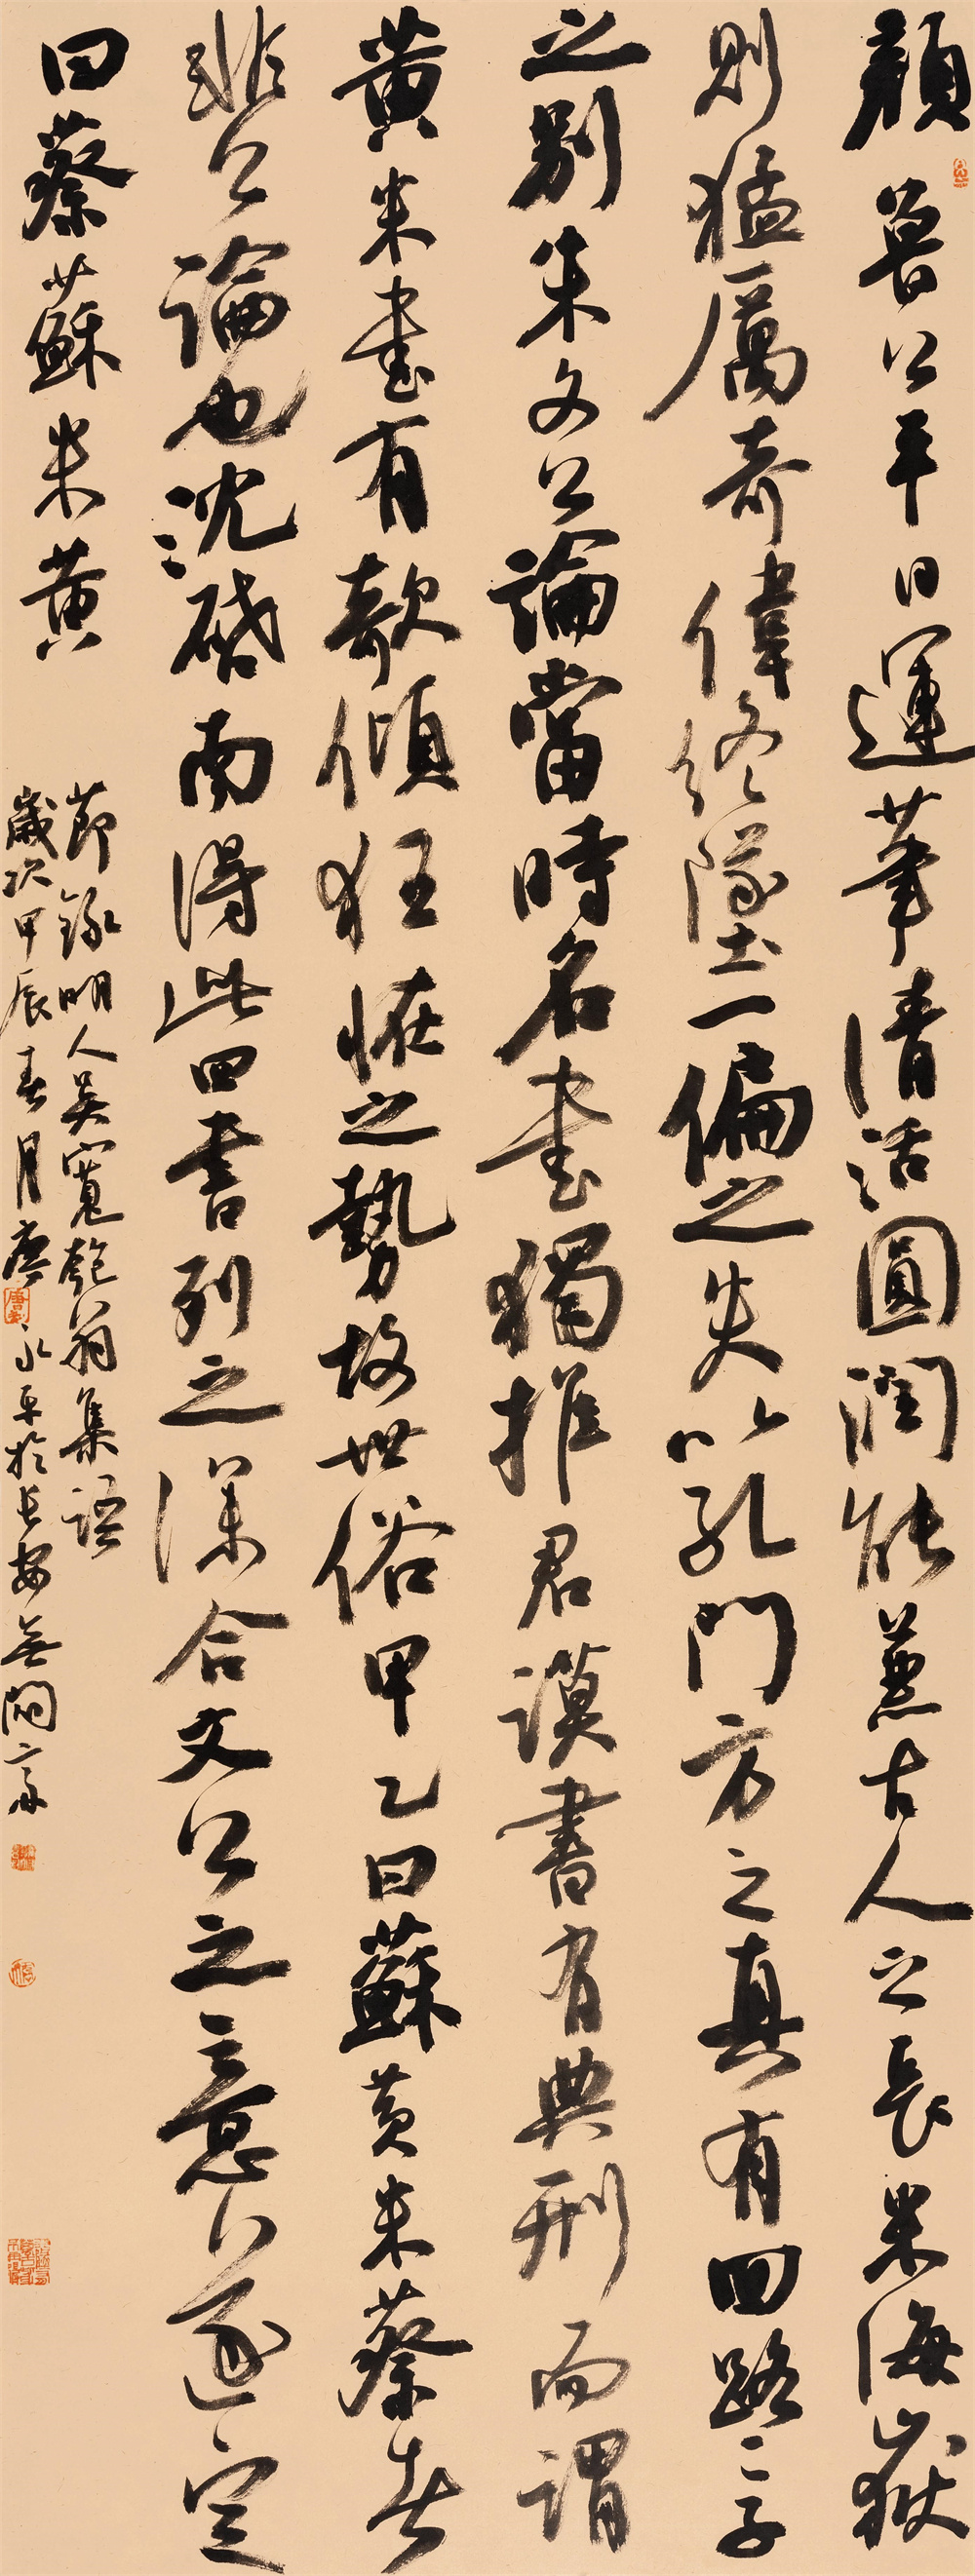 顏魯公平日運筆清活圓潤能兼古人之長米海嶽
則猛厲奇偉終墜一偏之失以孔門方之真有回路二子
之別朱文公論當時名書獨推君謨書有典刑而謂
黃米書有欹傾狂怪之勢故世俗甲乙曰蘇黃米蔡者
非公論也沈啓南得此四書列之深合文公之意以遂定
曰蔡蘇米黃
節錄明人吳寬匏翁集語
歲次甲辰春月唐永平於長安無悶齋